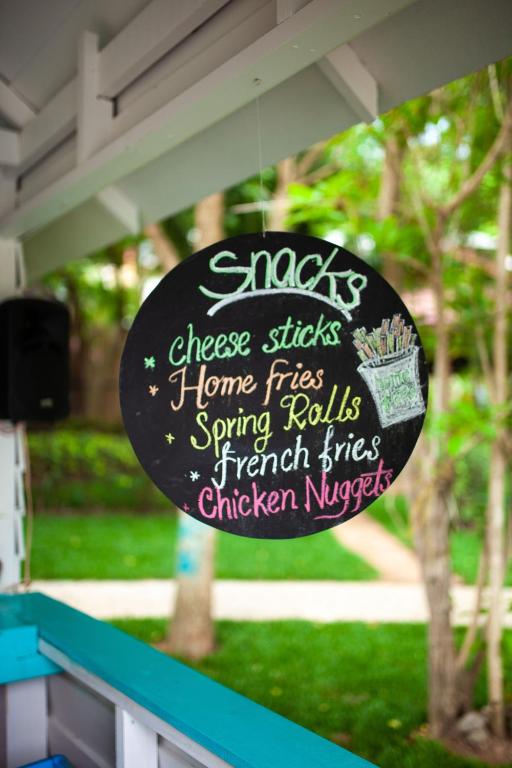 Snacks
* Cheese sticks
* Home fries
* Spring Rolls
* french fries
* Chicken Nuggets